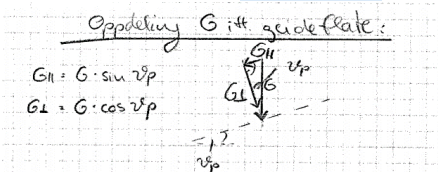 Oppdeling G ift guideflate:
G∥ = G · sin υp
G⊥ = G · cos υp
G∥
υp
G⊥
G
υp